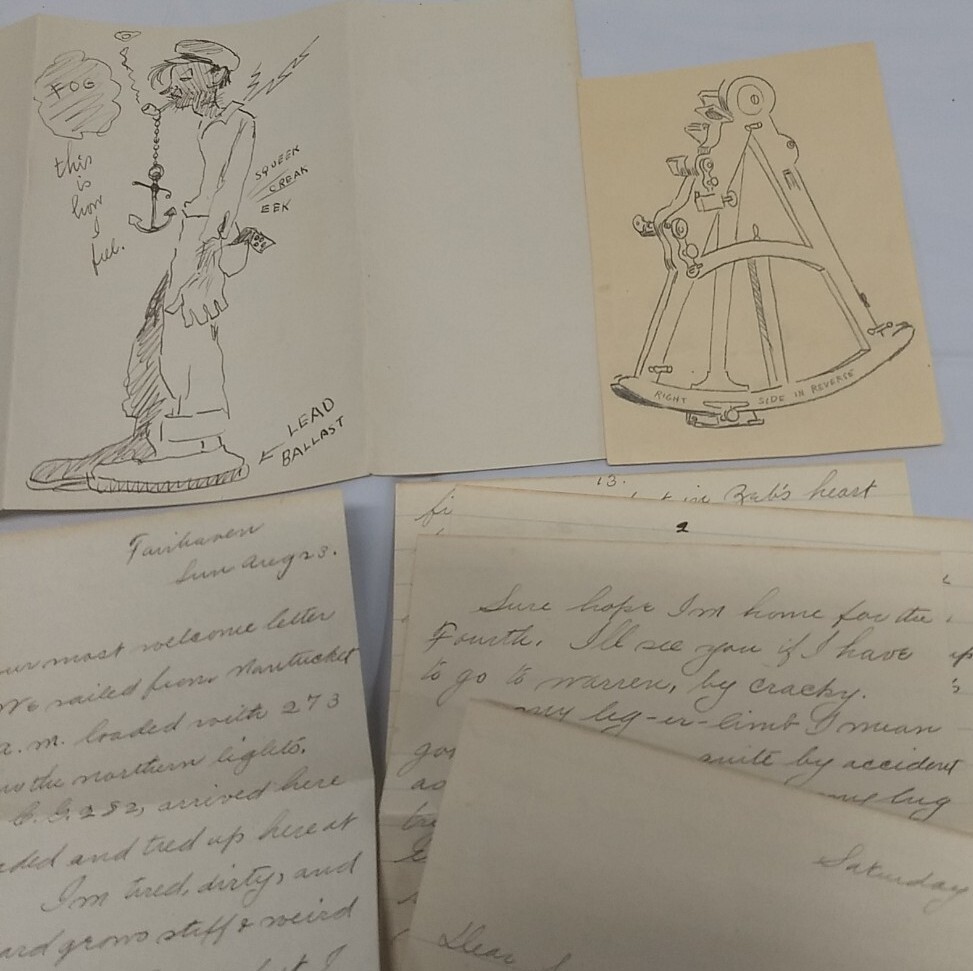 FOG
this
is
how
I
feel.
SQUEEK
CREAK
EEK
LEAD
BALLAST
RIGHT SIDE IN REVERSE
Fairhaven
Sun Aug 23.
our most welcome letter
We sailed from Nantucket
a.m. loaded with 273
the northern lights.
C.G. 282, arrived here
ded and tied up here at
I'm tired, dirty, and
ard grows stiff & weird
I
13.
in Zeb's heart
fi
2
Sure hope I'm home for the
Fourth. I'll see you if I have
to go to Warren, by cracky.
my leg-er-limb I mean
quite by accident
my lug
Saturday
Dear